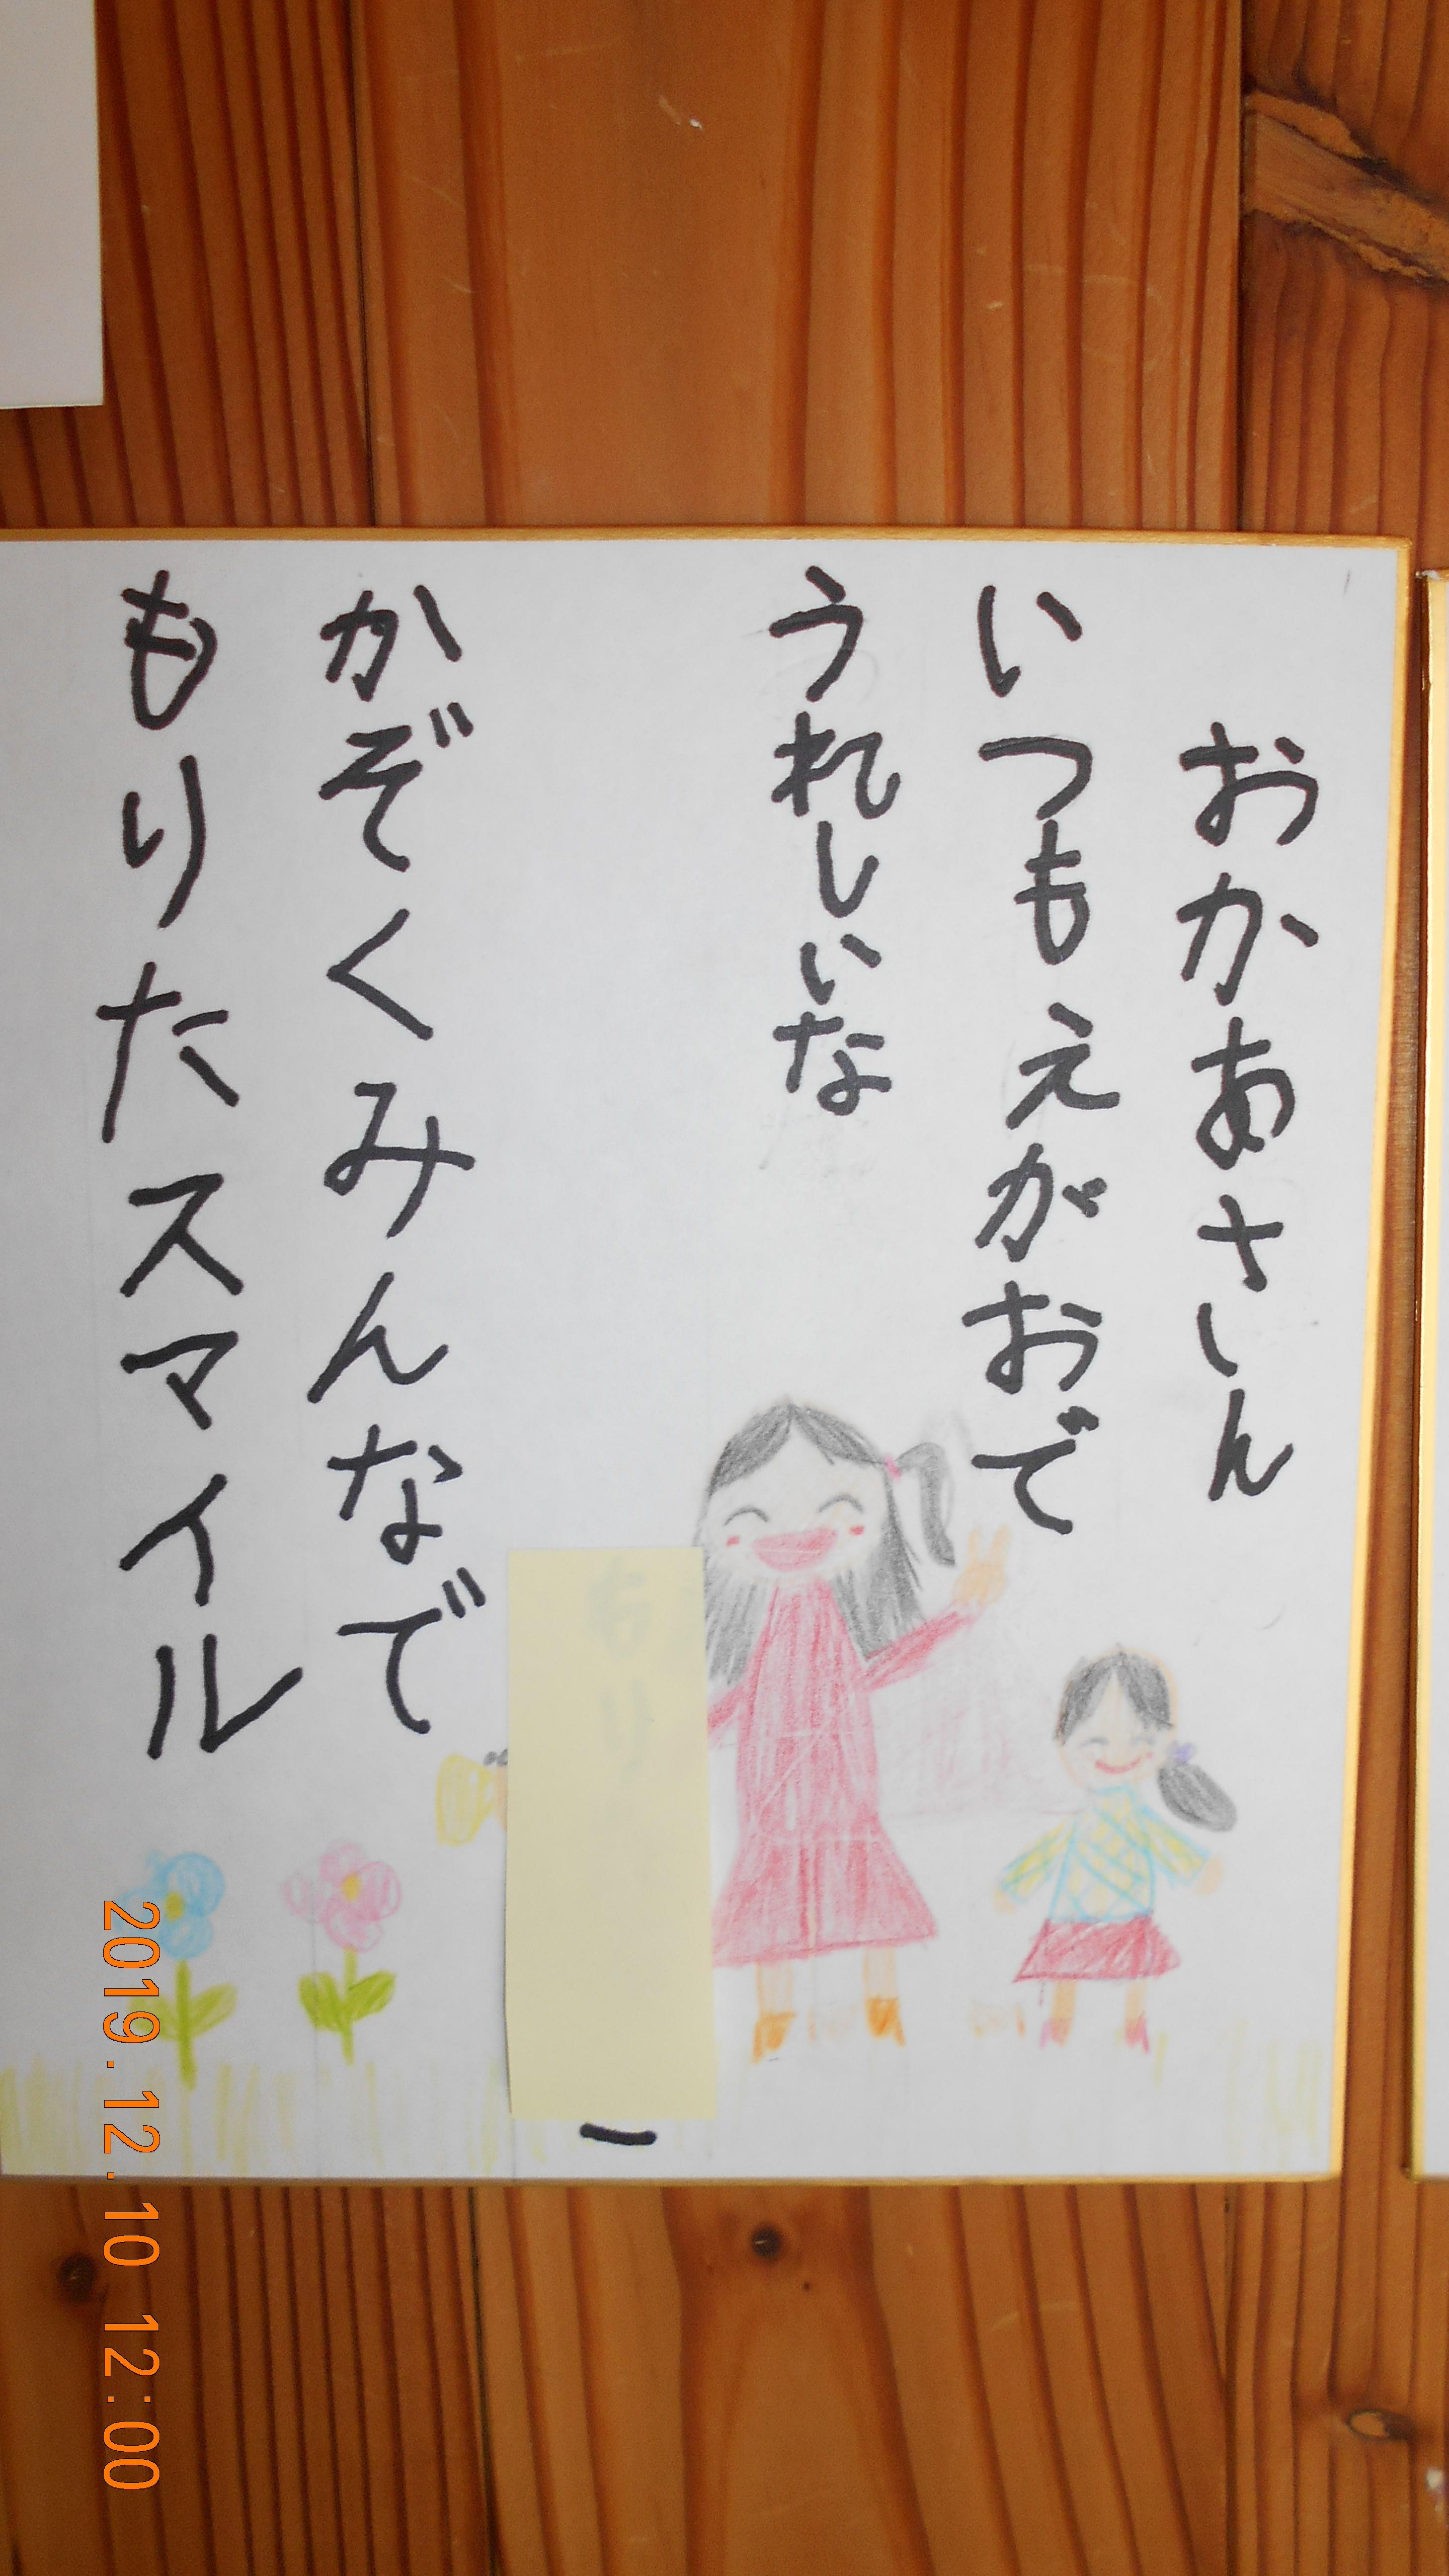 おかあさん
いつもえがおで
うれしいな
かぞくみんなで
もりたスマイル
2019.12.10 12:00